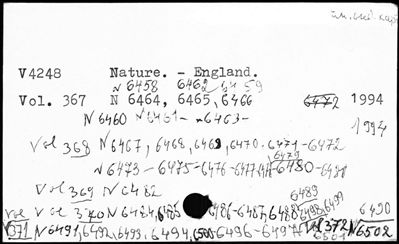 V4248 Nature. - England.
N 6458 6462 6459
Vol. 367 N 6464, 6465, 6466 6472 1994
N 6460 N 6461 - 6463 -
1994
Vol 368 N 6467, 6468, 6469, 6470 - 6471 - 6472
6479
N 6473 - 6475 - 6476 - 6477 - 6480 -
Vol 369 N 6482
6489
Vol 370 N 6484, 6485 6486 - 6487, 6488 6498, 6499 6490
Vol 371 N 6491, 6492, 6493, 6494, 6500 - 6496 - 6497 Vol 372 N 6502